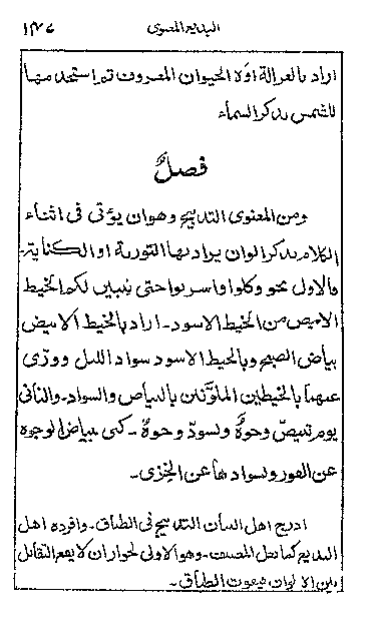 البديع المعنوى ١٣٧
اراد بالغزالة اولا الحيوان المعروف ثم استخدمها
للشمس بذكر السماء
فصلٌ
ومن المعنوى التدبيج وهو ان يؤتى فى اثناء
الكلام بذكر الوان يراد بها التورية او الكناية
فالاول نحو وكلوا واشربوا حتى يتبين لكم الخيط
الابيض من الخيط الاسود ـ اراد بالخيط الابيض
بياض الصبح وبالخيط الاسود سواد الليل وورّى
عنهما بالخيطين الملوّنين بالبياض والسواد ـ والثانى
يوم تبيضّ وجوهٌ وتسودّ وجوهٌ ـ كنى ببياض الوجوه
عن الفوز وبسوادها عن الخِزى ـ
ادرج اهل البيان التدبيج فى الطباق ـ وافرده اهل
البديع كما فعل المصنف ـ وهو الاولى لجواز ان لا يقع التقابل
بين الالوان فيفوت الطباق ـ